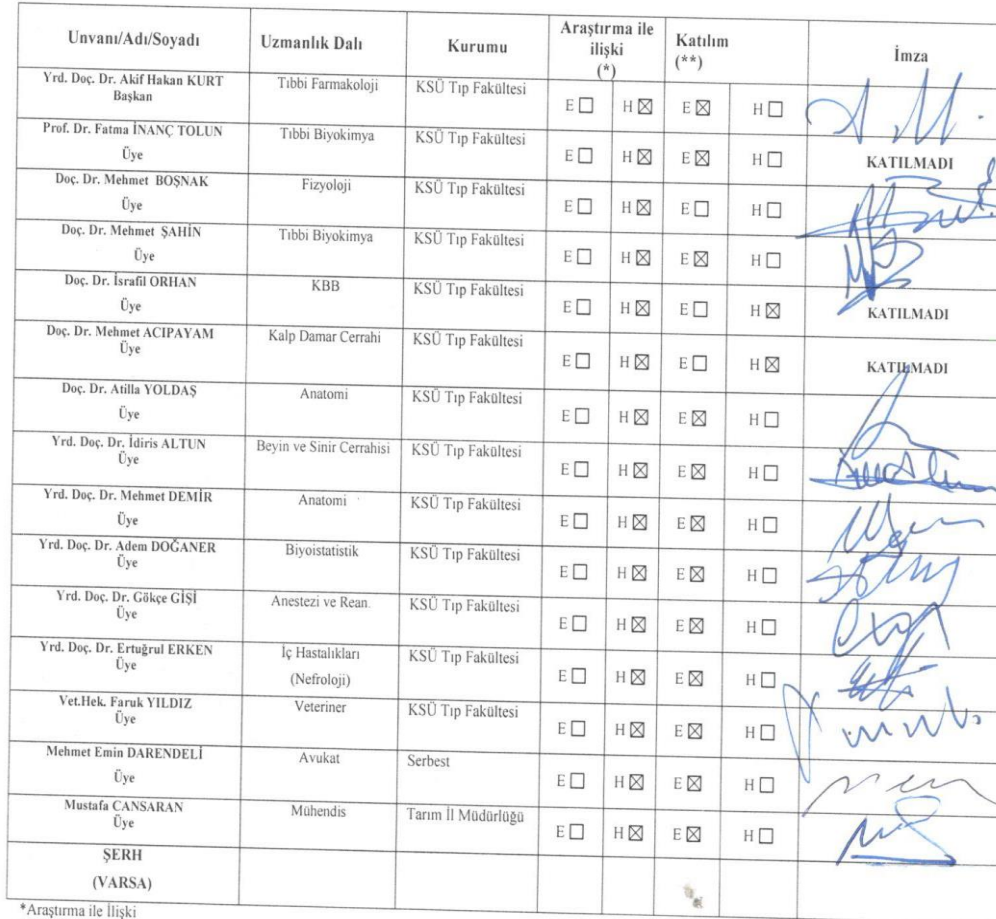 Unvanı/Adı/Soyadı Uzmanlık Dalı Kurumu Araştırma ile ilişki (*) Katılım (**) İmza
Yrd. Doç. Dr. Akif Hakan KURT Tıbbi Farmakoloji KSÜ Tıp Fakültesi
Başkan E ☐ H ☒ E ☒ H ☐
Prof. Dr. Fatma İNANÇ TOLUN Tıbbi Biyokimya KSÜ Tıp Fakültesi
Üye E ☐ H ☒ E ☒ H ☐ KATILMADI
Doç. Dr. Mehmet BOŞNAK Fizyoloji KSÜ Tıp Fakültesi
Üye E ☐ H ☒ E ☐ H ☐
Doç. Dr. Mehmet ŞAHİN Tıbbi Biyokimya KSÜ Tıp Fakültesi
Üye E ☐ H ☒ E ☒ H ☐
Doç. Dr. İsrafil ORHAN KBB KSÜ Tıp Fakültesi
Üye E ☐ H ☒ E ☐ H ☒ KATILMADI
Doç. Dr. Mehmet ACIPAYAM Kalp Damar Cerrahi KSÜ Tıp Fakültesi
Üye E ☐ H ☒ E ☐ H ☒ KATILMADI
Doç. Dr. Atilla YOLDAŞ Anatomi KSÜ Tıp Fakültesi
Üye E ☐ H ☒ E ☒ H ☐
Yrd. Doç. Dr. İdiris ALTUN Beyin ve Sinir Cerrahisi KSÜ Tıp Fakültesi
Üye E ☐ H ☒ E ☒ H ☐
Yrd. Doç. Dr. Mehmet DEMİR Anatomi KSÜ Tıp Fakültesi
Üye E ☐ H ☒ E ☒ H ☐
Yrd. Doç. Dr. Adem DOĞANER Biyoistatistik KSÜ Tıp Fakültesi
Üye E ☐ H ☒ E ☒ H ☐
Yrd. Doç. Dr. Gökçe GİŞİ Anestezi ve Rean. KSÜ Tıp Fakültesi
Üye E ☐ H ☒ E ☒ H ☐
Yrd. Doç. Dr. Ertuğrul ERKEN İç Hastalıkları KSÜ Tıp Fakültesi
Üye (Nefroloji) E ☐ H ☒ E ☒ H ☐
Vet.Hek. Faruk YILDIZ Veteriner KSÜ Tıp Fakültesi
Üye E ☐ H ☒ E ☒ H ☐
Mehmet Emin DARENDELİ Avukat Serbest
Üye E ☐ H ☒ E ☒ H ☐
Mustafa CANSARAN Mühendis Tarım İl Müdürlüğü
Üye E ☐ H ☒ E ☒ H ☐
ŞERH
(VARSA)
*Araştırma ile İlişki